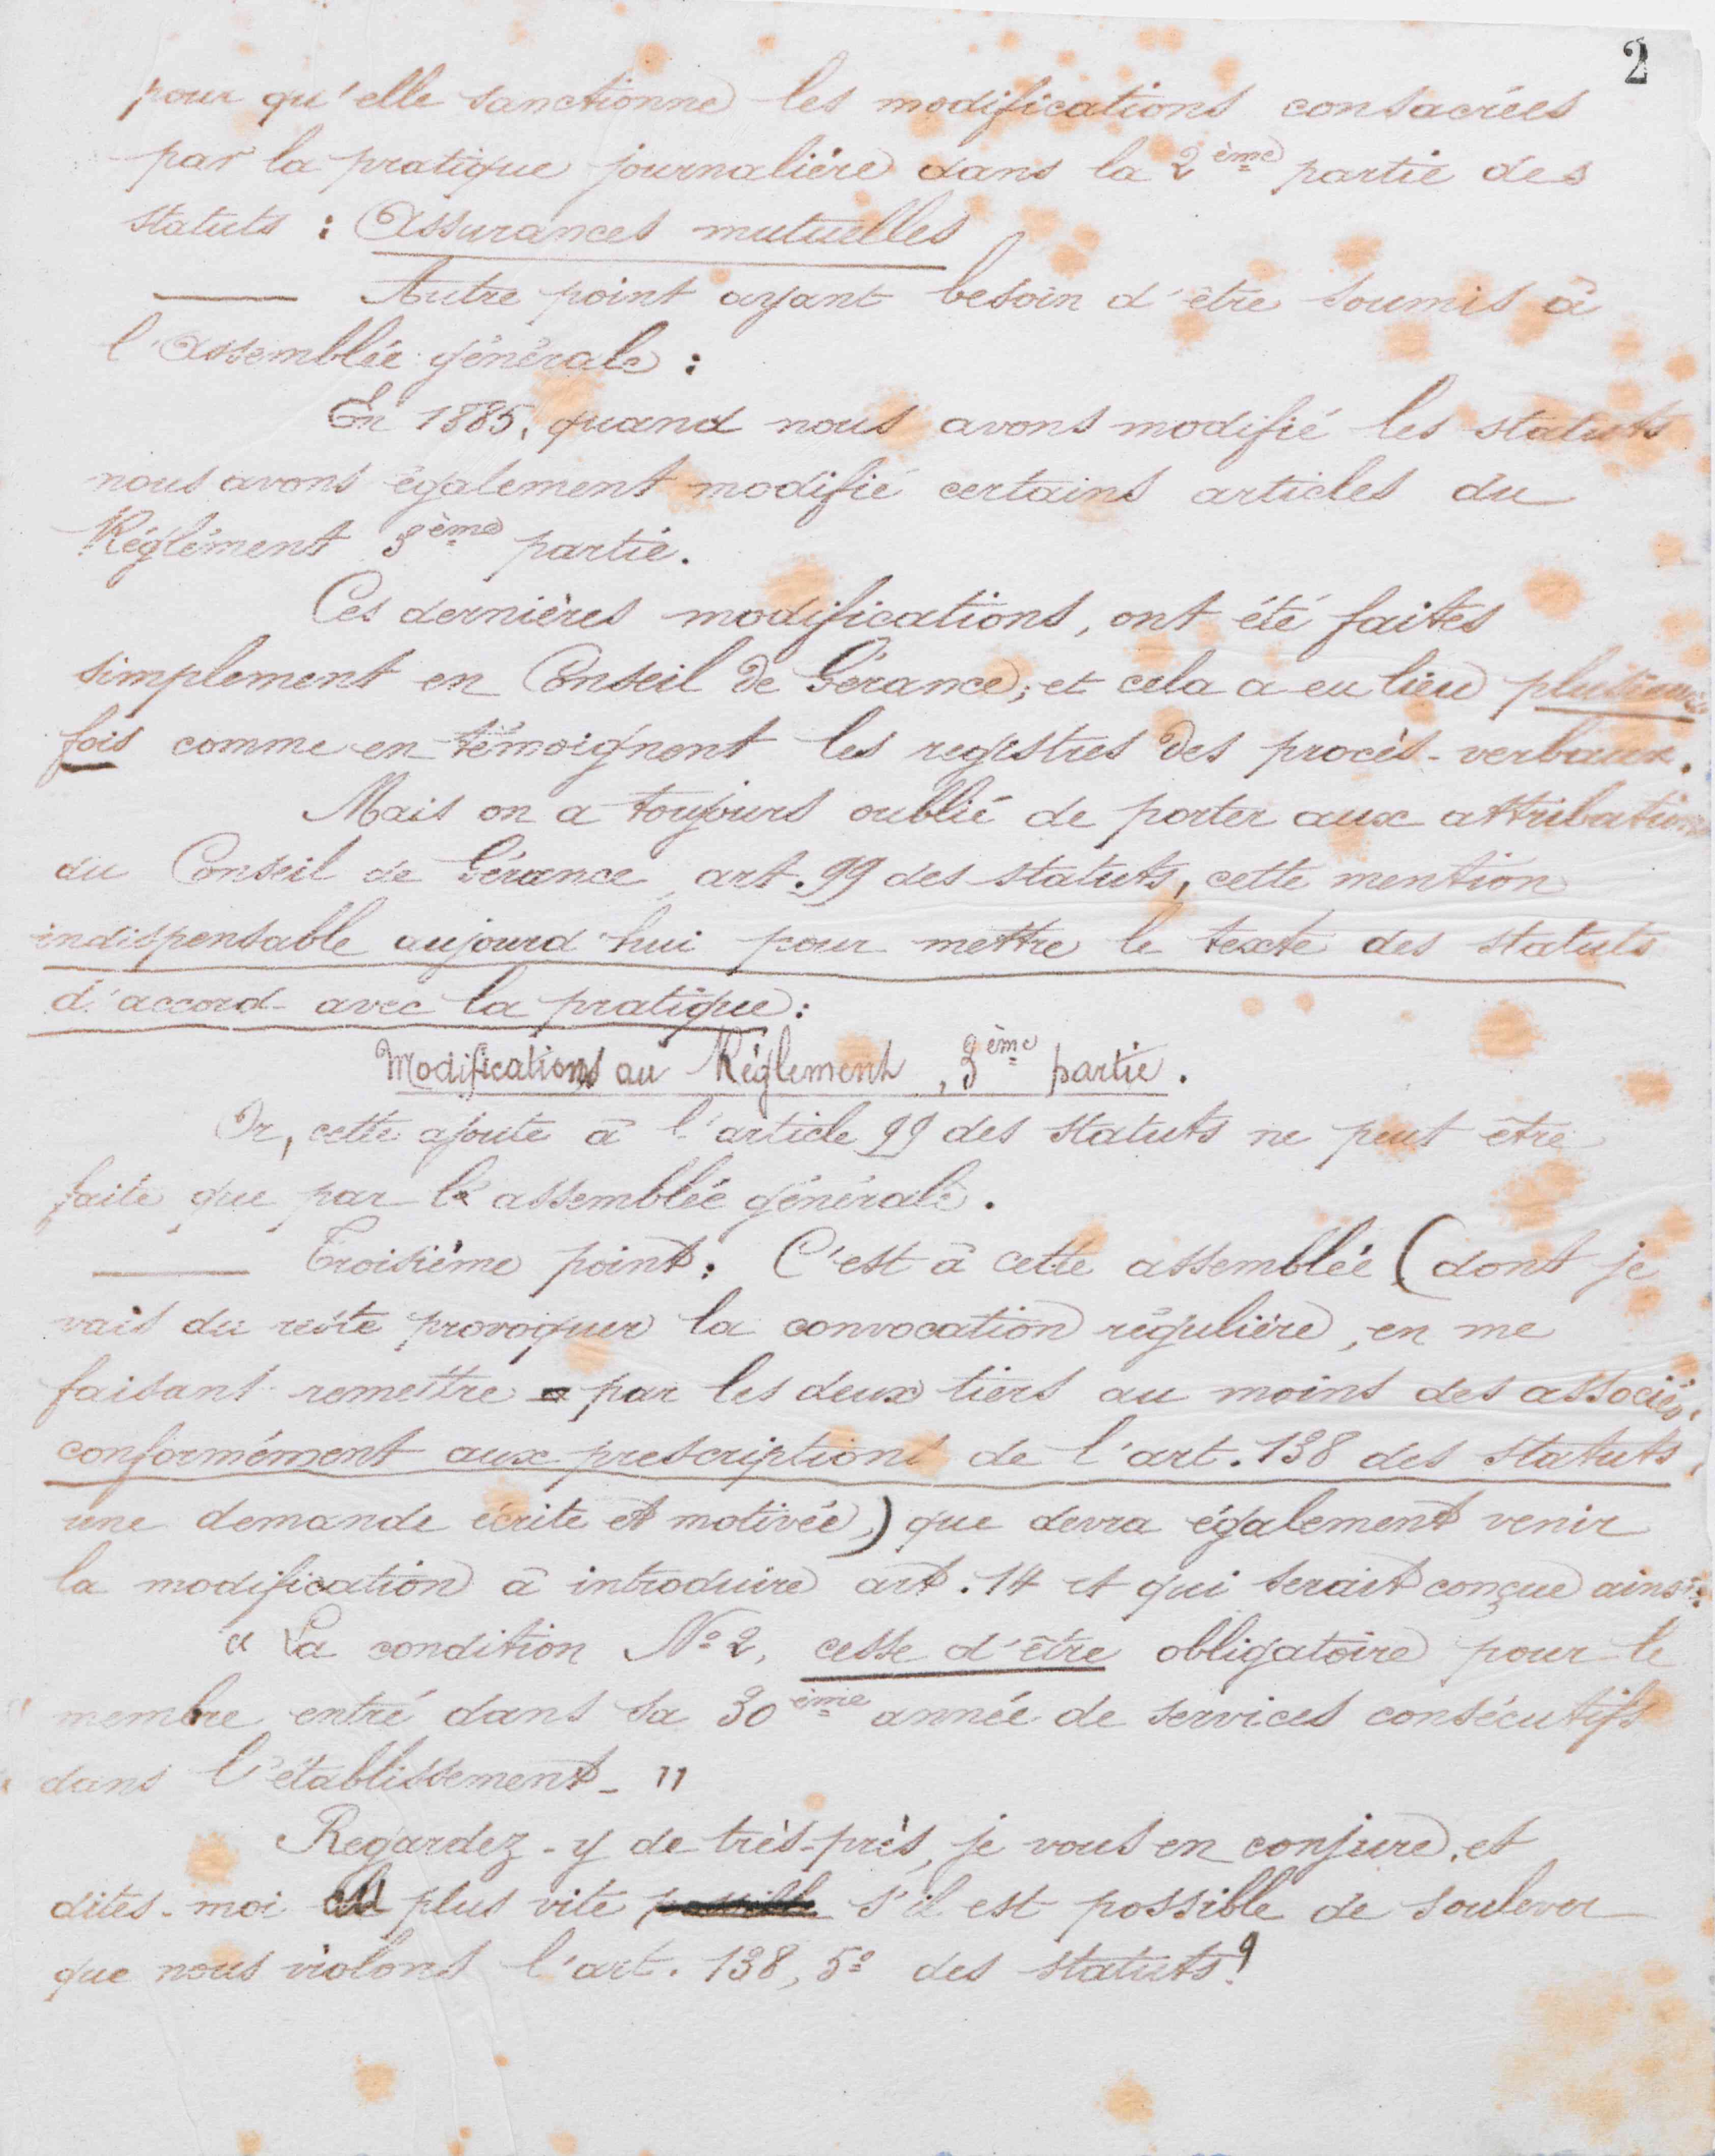 2
pour qu'elle sanctionne les modifications consacrées
par la pratique journalière dans la 2ème partie des
statuts : Assurances mutuelles
Autre point ayant besoin d'être soumis à
l'Assemblée générale :
En 1885, quand nous avons modifié les statuts
nous avons également modifié certains articles du
Réglement 3ème partie.
Ces dernières modifications, ont été faites
simplement en Conseil de Gérance, et cela a eu lieu plusieurs
fois comme en témoignent les registres des procès-verbaux.
Mais on a toujours oublié de porter aux attributions
du Conseil de Gérance, art. 99 des statuts, cette mention
indispensable aujourd'hui pour mettre le texte des statuts
d'accord avec la pratique :
Modifications au Réglement, 3ème partie.
Or, cette ajoute à l'article 99 des statuts ne peut être
faite que par l'assemblée générale.
Troisième point : C'est à cette assemblée (dont je
vais du reste provoquer la convocation régulière, en me
faisant remettre par les deux tiers au moins des associés,
conformément aux prescriptions de l'art. 138 des statuts,
une demande écrite et motivée) que devra également venir
la modification à introduire art. 14 et qui serait conçue ainsi :
" La condition N° 2, cesse d'être obligatoire pour le
" membre entré dans sa 30ème année de services consécutifs
" dans l'établissement - "
Regardez-y de très-près, je vous en conjure, et
dites-moi au plus vite s'il est possible de soulever
que nous violons l'art. 138, 5° des statuts ?